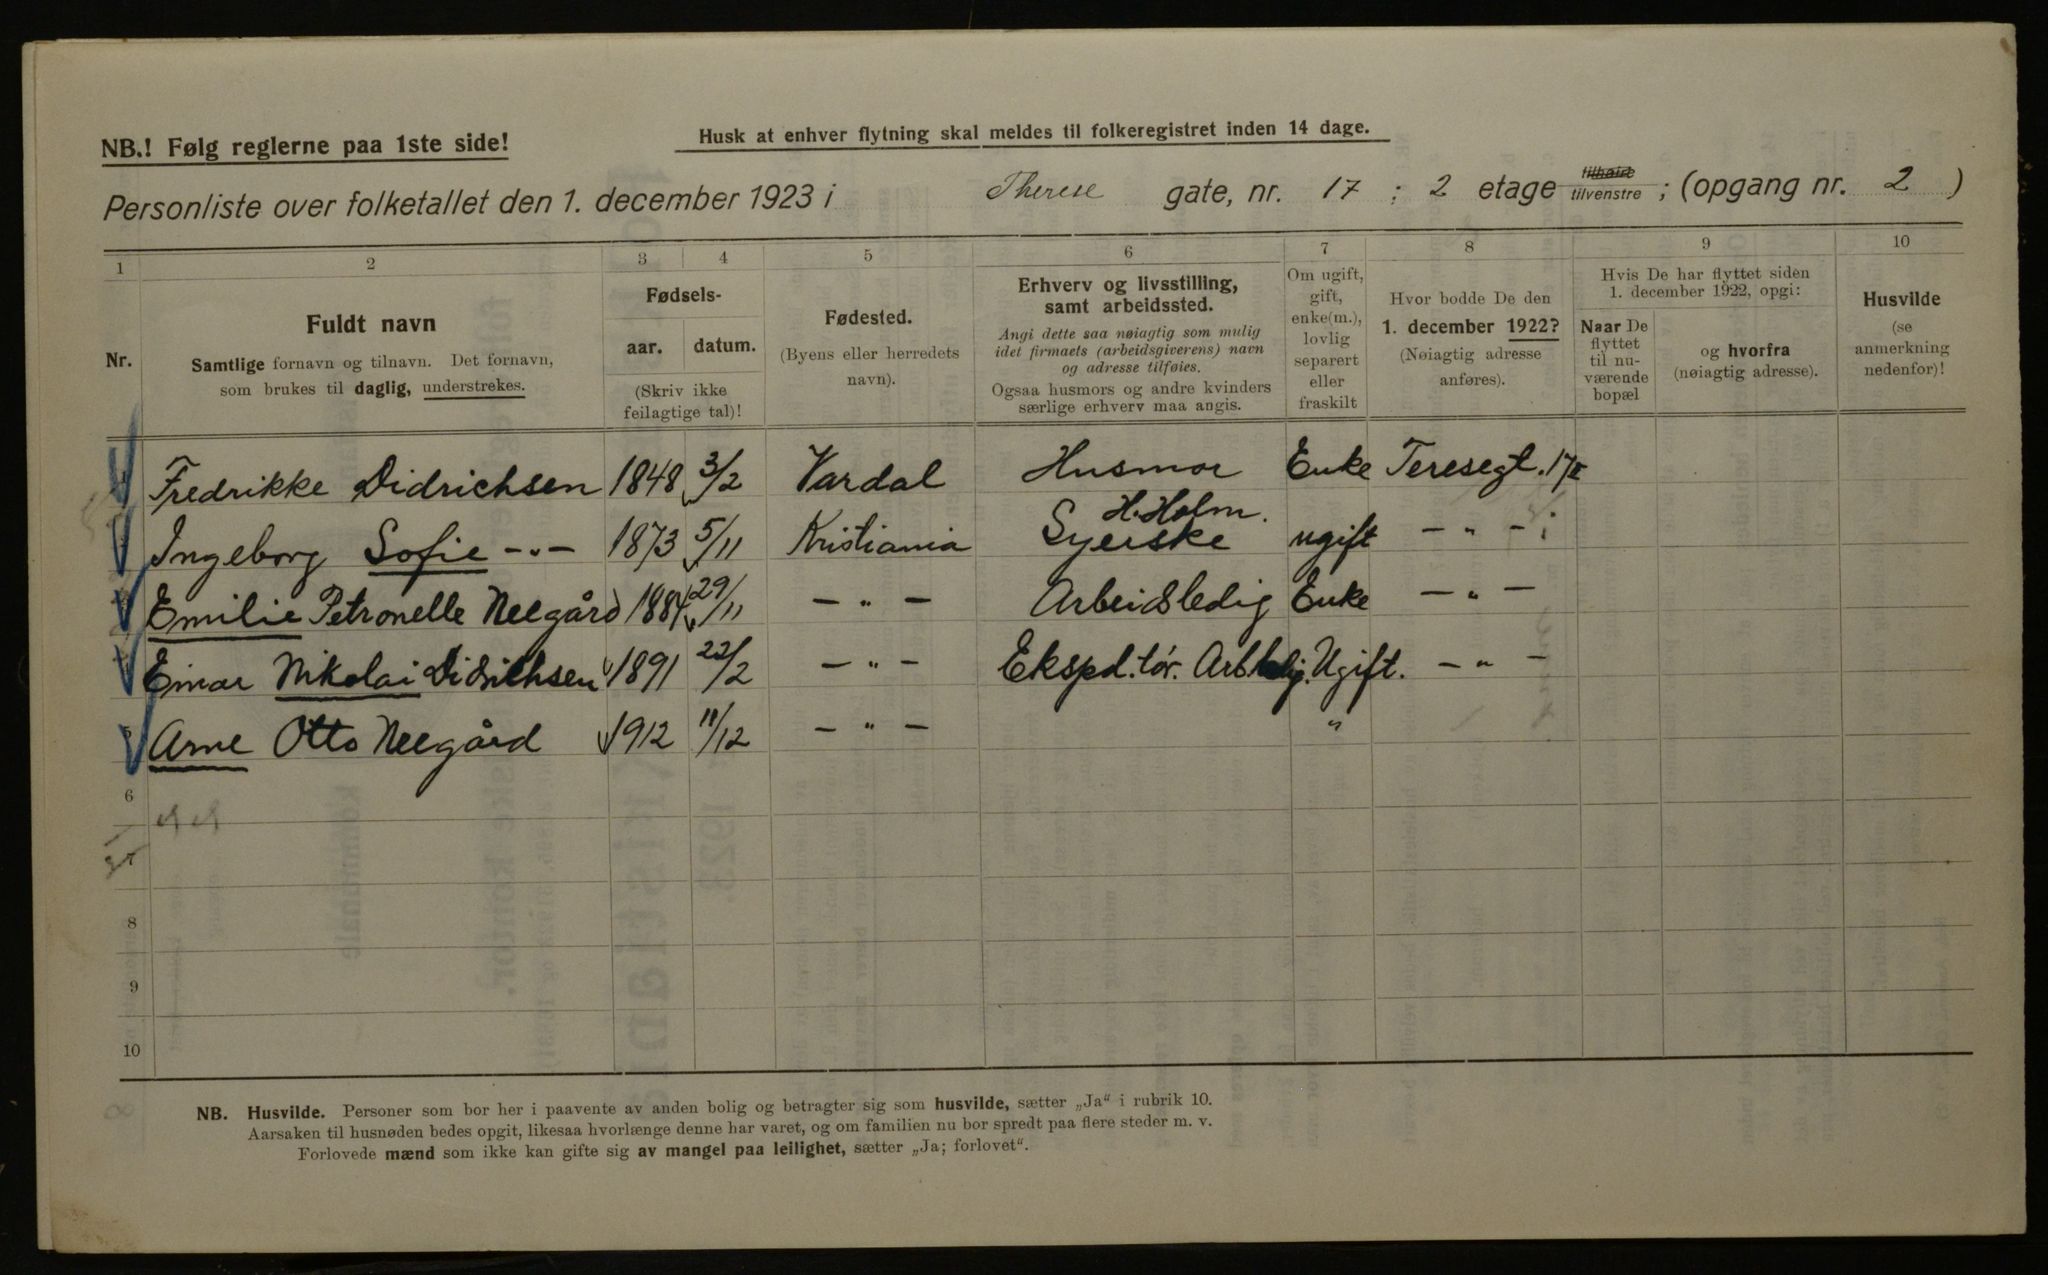 NB.! Følg reglerne paa 1ste side!
Husk at enhver flytning skal meldes til folkeregistret inden 14 dage.
Personliste over folketallet den 1. december 1923 i Therese gate, nr. 17 ; 2 etage tilhøire tilvenstre ; (opgang nr. 2 )
1 2 3 4 5 6 7 8 9 10
Nr.
Fuldt navn
Samtlige fornavn og tilnavn. Det fornavn,
som brukes til daglig, understrekes.
Fødsels-
aar. datum.
(Skriv ikke
feilagtige tal)!
Fødested.
(Byens eller herredets
navn).
Erhverv og livsstilling,
samt arbeidssted.
Angi dette saa nøiagtig som mulig
idet firmaets (arbeidsgiverens) navn
og adresse tilføies.
Ogsaa husmors og andre kvinders
særlige erhverv maa angis.
Om ugift,
gift,
enke(m.),
lovlig
separert
eller
fraskilt
Hvor bodde De den
1. december 1922?
(Nøiagtig adresse
anføres).
Hvis De har flyttet siden
1. december 1922, opgi:
Naar De
flyttet
til nu-
værende
bopæl
og hvorfra
(nøiagtig adresse).
Husvilde
(se
anmerkning
nedenfor)!
Fredrikke Didrichsen 1848 3/2 Vardal Husmor Enke Teresegt. 17II
H. Holm.
Ingeborg Sofie -"- 1873 5/11 Kristiania Syerske ugift - " -
Emilie Petronelle Neegård 1884 29/11 - " - Arbeidsledig Enke - " -
Einar Nikolai Didrichsen 1891 22/2 - " - Ekspd.tør. Ugift. - " -
Arne Otto Neegård 1912 11/12 - " - "
6
7
8
9
10
NB. Husvilde. Personer som bor her i paavente av anden bolig og betragter sig som husvilde, sætter „Ja“ i rubrik 10.
Aarsaken til husnøden bedes opgit, likesaa hvorlænge denne har varet, og om familien nu bor spredt paa flere steder m. v.
Forlovede mænd som ikke kan gifte sig av mangel paa leilighet, sætter „Ja; forlovet“.